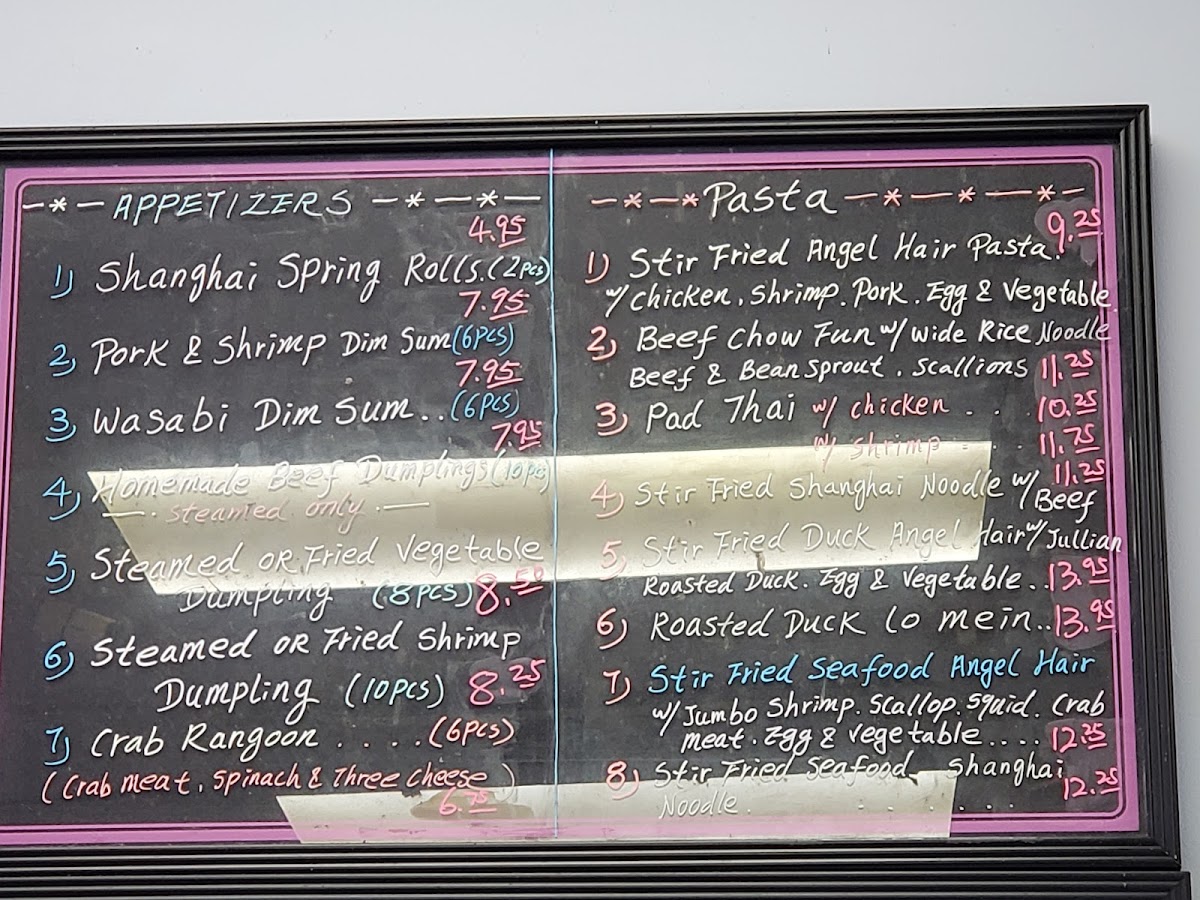 —*— APPETIZERS —*—*—
4.95
1) Shanghai Spring Rolls.(2pcs)
7.95
2) Pork & Shrimp Dim Sum(6pcs)
7.95
3) Wasabi Dim Sum..(6pcs)
7.95
4) Homemade Beef Dumplings(10pc)
—. steamed only .—
5) Steamed or Fried Vegetable
Dumpling (8pcs) 8.50
6) Steamed or Fried Shrimp
Dumpling (10pcs) 8.25
7) Crab Rangoon ....(6pcs)
(Crab meat, Spinach & Three Cheese)
6.75
—*—*Pasta—*—*—*—
9.25
1) Stir Fried Angel Hair Pasta.
w/ chicken. Shrimp. Pork. Egg & Vegetable
2) Beef Chow Fun w/ Wide Rice Noodle
Beef & Bean Sprout. Scallions 11.25
3) Pad Thai w/ chicken ... 10.25
w/ shrimp ... 11.75
11.25
4) Stir Fried Shanghai Noodle w/ Beef
5) Stir Fried Duck Angel Hair w/ Jullian
Roasted Duck. Egg & Vegetable..13.95
6) Roasted Duck lo mein..13.95
7) Stir Fried Seafood Angel Hair
w/ Jumbo Shrimp. Scallop. Squid. Crab
meat. Egg & Vegetable.... 12.25
8) Stir Fried Seafood Shanghai
Noodle. ....... 12.25